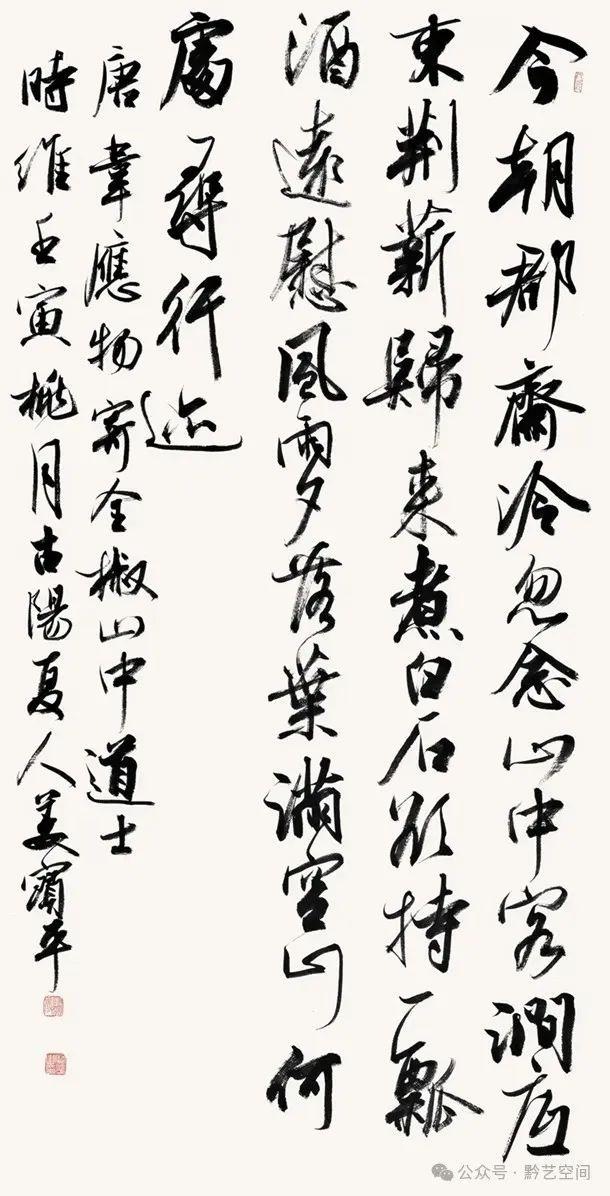 今朝郡齋冷忽念山中客澗底
束荆薪歸来煮白石欲持一瓢
酒遠慰風雨夕落葉滿空山何
處尋行迹
唐韋應物寄全椒山中道士
時維壬寅桃月古陽夏人姜寶平
公众号·黔艺空间